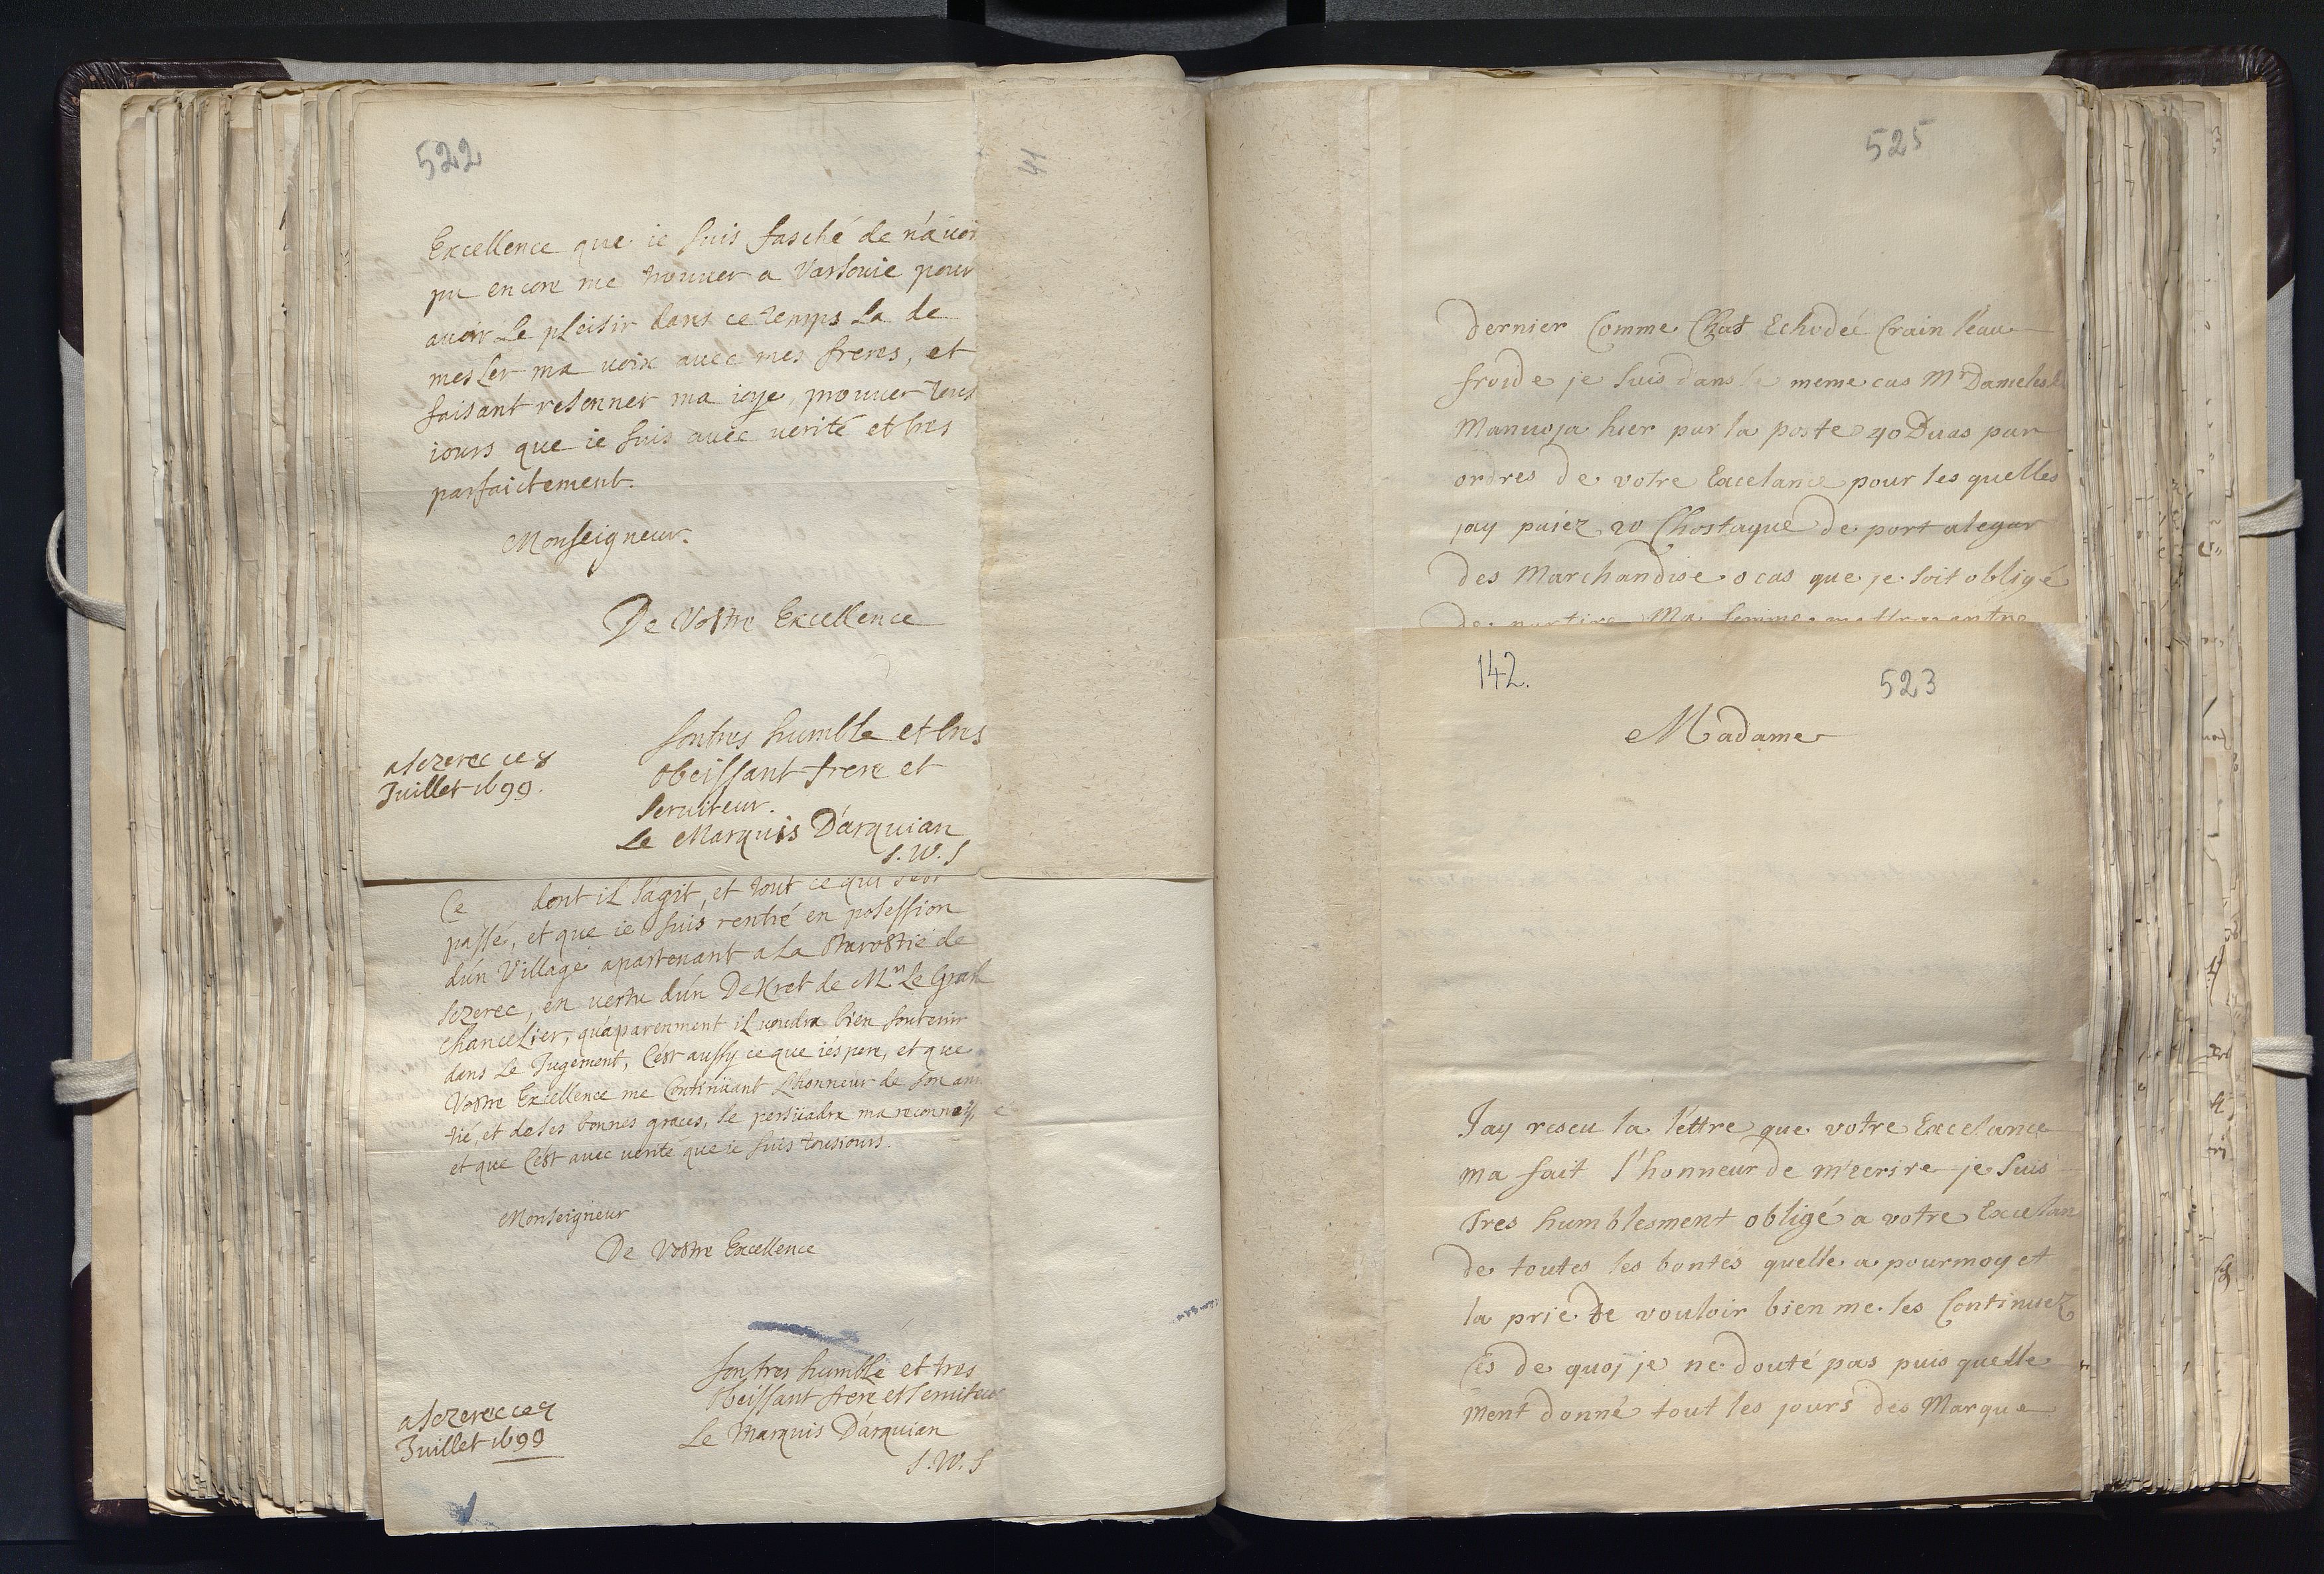 522
Excellence que ie suis fasché de n'auoir
pu encore me trouuer a Varsouie pour
auoir le pleisir dans ce temps la de
mesler ma uoix auec mes freres, et
faisant resonner ma ioye, prouuer tous
iours que ie suis auec uerité et tres
parfaictement.
Monseigneur.
De Vostre Excellence
son tres humble et tres
obeissant frere et
seruiteur.
Le Marquis D'arquian
S.W.S
a sezerec ce 8
Juillet 1699.
41
Ce dont il s'agit, et tout ce qui s'est
passé, et que ie suis rentré en posession
d'un Village apartenant a la starostie de
sezerec, en uertu d'un Dekret de Mr. Le Grand
Chancelier, qu'aparenment il uoudra bien soutenir
dans Le Jugement, C'est aussy ce que i'espere, et que
Vostre Excellence me Continüant L'honneur de son ami
tié, et de ses bonnes graces, se persüadra ma reconnoiss
et que C'est auec uerité que ie suis tousiours.
Monseigneur
De Vostre Excellence
son tres humble et tres
obeissant frere et seruiteur
Le Marquis D'arquian
S.W.S
a sezerec ce 9
Juillet 1699
525
dernier Comme Chat Echodeé Crain l'eau
froide je suis dans le meme cas Mr
Manuoja hier par la poste 40 Ducas par
ordres de votre Excelance pour les quelles
jay paiez 20 Chostaque de port alegar
des Marchandise o cas que je soit obligé
de partire Ma femme
142.
523
Madame
Jay reseu la lettre que votre Excelance
ma fait l'honneur de m'ecrire je suis
Tres humblesment obligé a votre Excelan
de toutes les bontés quelle a pour moy et
la prie de vouloir bien me les Continuez
ses de quoj je ne douté pas puis quelle
ment donné tout les jours des Marque